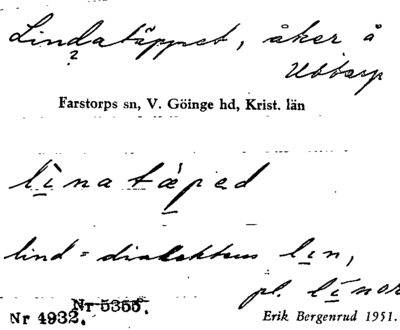 Lindatäppet, åker å
?
Ubbarp
Farstorps sn, V. Göinge hd, Krist. län
li̱natæ̱ped
lind = dialektens li̱n,
pl. li̱nor
Nr 5355.
Nr 4932.
Erik Bergenrud 1951.